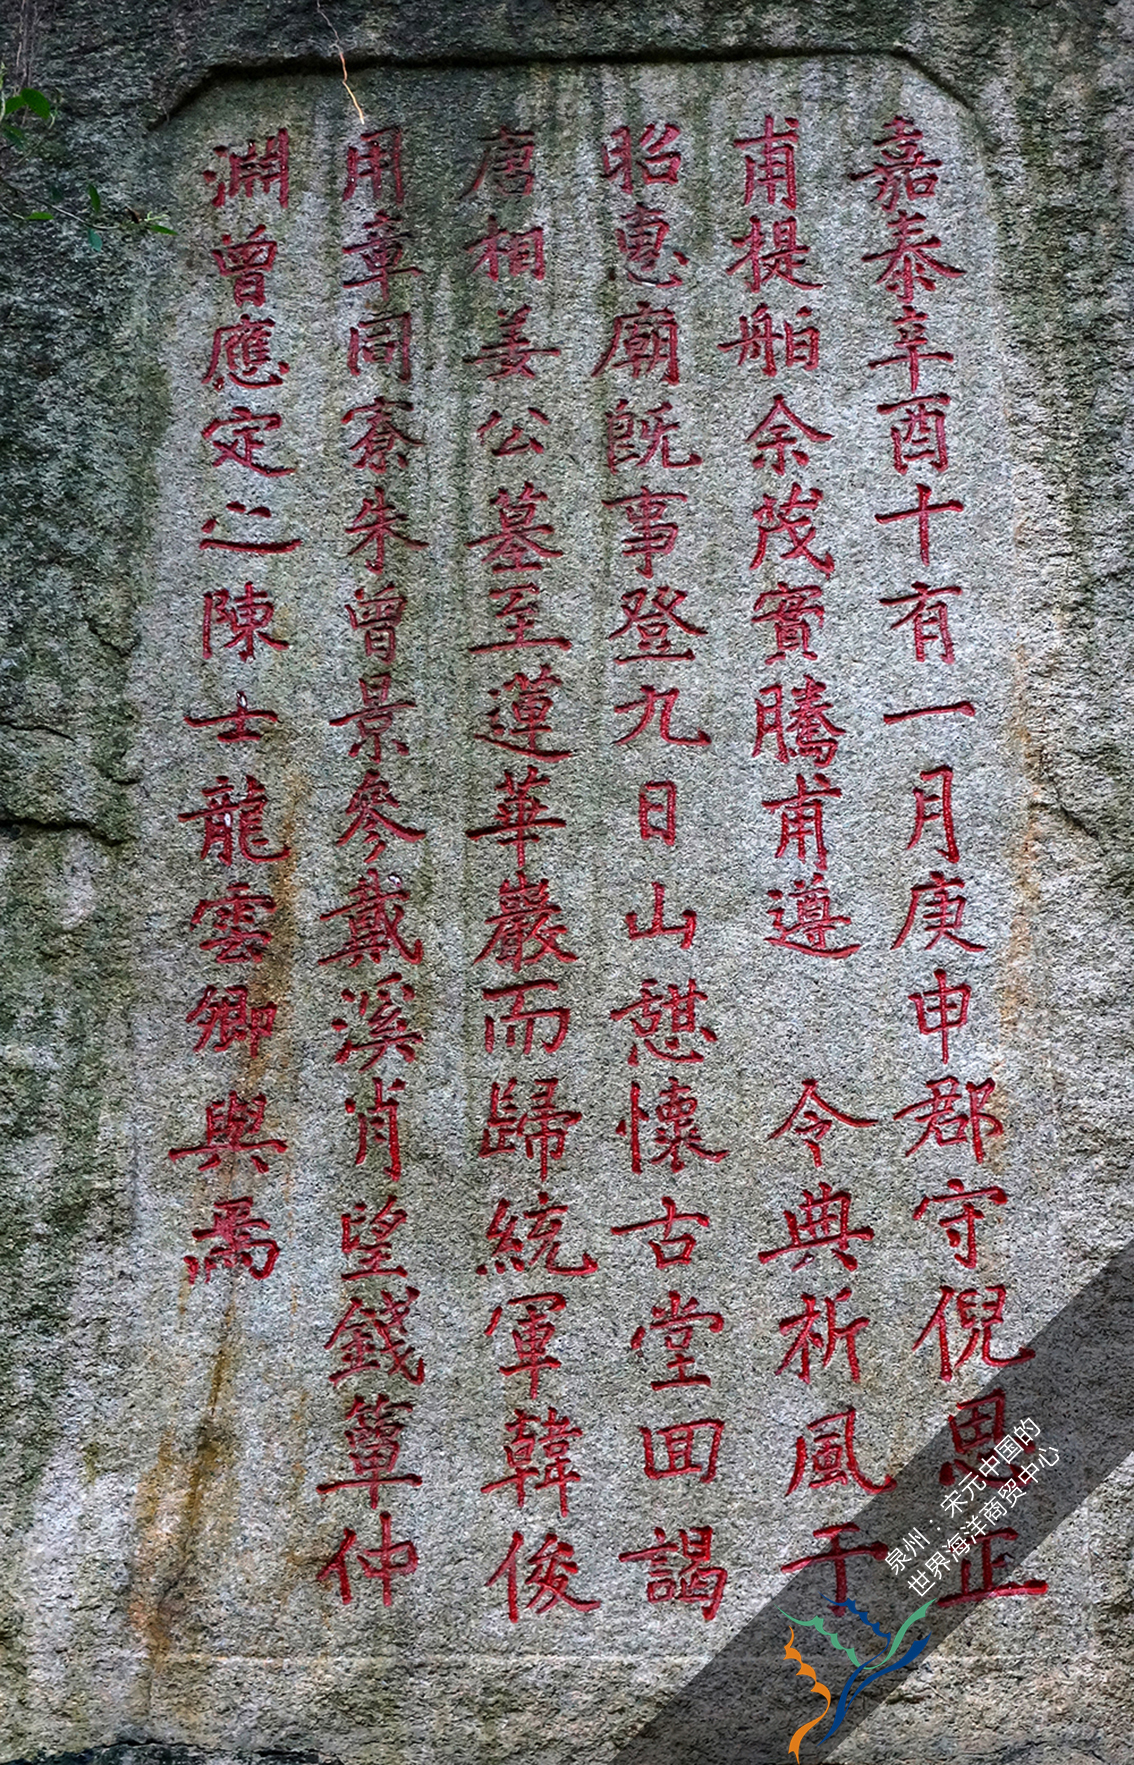 嘉泰辛酉十有一月庚申郡守倪思正
甫提舶余茂實騰甫遵 令典祈風于
昭惠廟既事登九日山憇懷古堂囬謁
唐相姜公墓至蓮華巖而歸統軍韓俊
用章同寮朱曾景參戴溪肖望錢簟仲
淵曾應定之陳士龍雲卿與焉
泉州：宋元中国的
世界海洋商贸中心